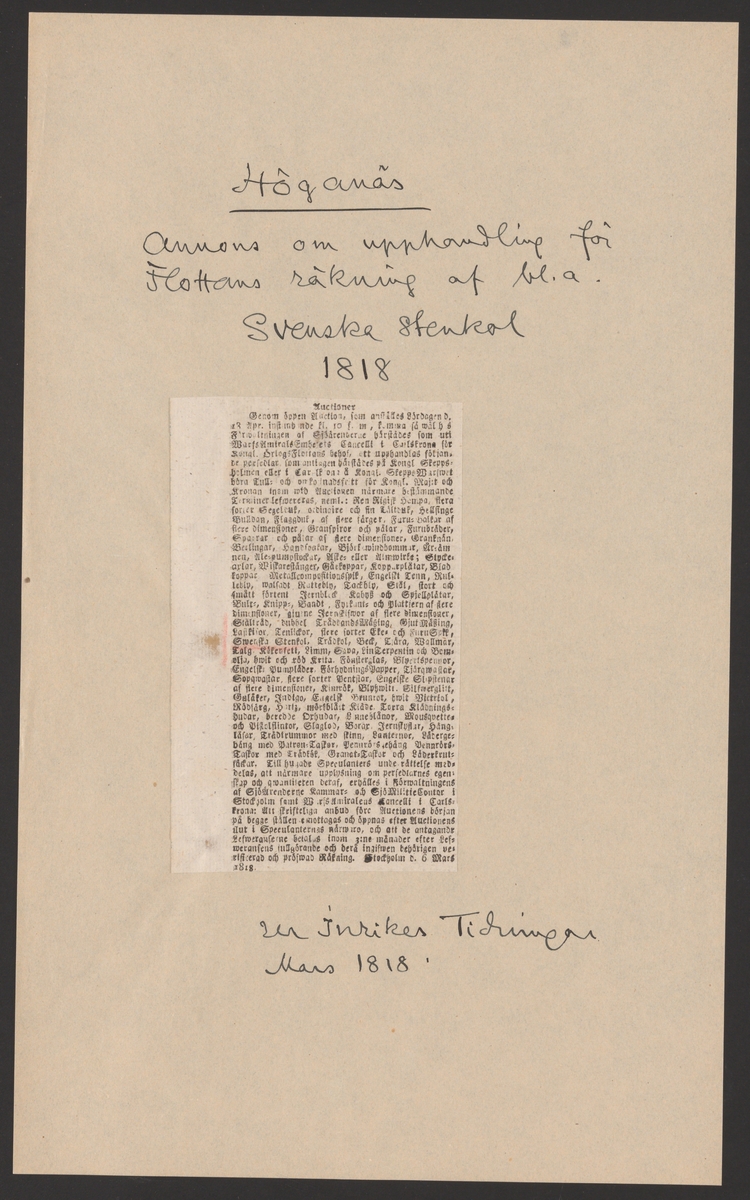 Höganäs
Annons om upphandling för
Flottans räkning af bl.a.
Svenska Stenkol
1818
Auctioner
Genom öppen Auction, som anställes Lördagen d.
Apr. kl. 10 f. m.,
Förwaltningen af Sjöärenderne härstädes som uti
WarfsAmiralsEmbetets Cancelli i Carlskrona för
Kongl. ÖrlogsFlottans behof, att upphandlas följan-
de persedlar som antingen härstädes på Kongl Skepps-
holmen eller i Carlskrona å Kongl. SkeppsWarfwet
böra Tull- och omkostnadsfritt för Kongl. Maj:t och
Kronan inom wid Auctionen närmare bestämmande
Terminer lefwereras, neml.: Ren Rigisk Hampa, flera
sorter Segelduk, ordinaire och fin Tältduk, Helsinge
Buldan, Flaggduk, af flere färger. Furu-balkar af
flere dimensioner, Granspiror och pålar, Furubräder,
Sparrar och pålar af flere dimensioner,
Handspakar,
Ale-pumpstockar, Aske- eller Almwirke; Stycke-
Wiskarestänger, Kopparplåtar, Blad
koppar. Metallcompositionsspik, Engelskt Tenn, Rul-
lebly, walsadt Rullebly, Tackbly, Stål, stort och
smått förtent Jernbleck och Spjellplåtar,
Bult-, Knipp-, Bandt, Fyrkant- och Plattjern af flere
dimensioner, af flere dimensioner,
Ståltråd, dubbel Mäßing, GjutMäßing,
Tenlickor, flere sorter Eke- och
Swenska Stenkol. Trädkol, Beck, Tjära, Wallmar,
Talg, Limm, Såpa, LinTerpentin och Bom-
olja, hwit och röd Krita. Fönsterglas, Blyertspennor,
Engelskt Pumpläder. FörhydningsPapper, Tjärqwastar,
Sopqwastar, flere sorter Penslar, Engelske Slipstenar
af flere dimensioner, Kimrök, Blyhwitt. Silfwerglitt,
Indigo, Engelsk hwit Victriol,
Rödfärg, Hartz, mörkblått Kläde. Torra Klädnings-
hudar, beredde Oxhudar, Mousquette-
och Pistolflintor, Slaglod, Borax. Häng-
låsar, Trädtrummor med skinn, Lanternor, Läderge-
häng med Patron-Taskor.
Taskor med Trädkåk, Granat-Taskor och Läderkrut-
säckar. Till hugade Speculanters underrättelse med-
delas, att närmare upplysning om persedlarnes egen-
skap och qwantiteten deraf, erhålles i Förwaltningens
af SjöÄrenderne Kammar- och SjöMilitieContor i
Stockholm samt WarfsAmiralens Cancelli i Carls-
krona: Att skriftliga anbud före Auctionens början
på begge ställen emottagas och öppnas efter Auctionens
slut i Speculanternes närwaro, och att de antagande
Lefwerancerne betalas inom 3:ne månader efter Lef-
weransens fullgörande och derå ingifwen behörigen ve-
rificerad och pröfwad Räkning. Stockholm d. 6 Mars
1818.
ur Inrikes Tidningar
Mars 1818